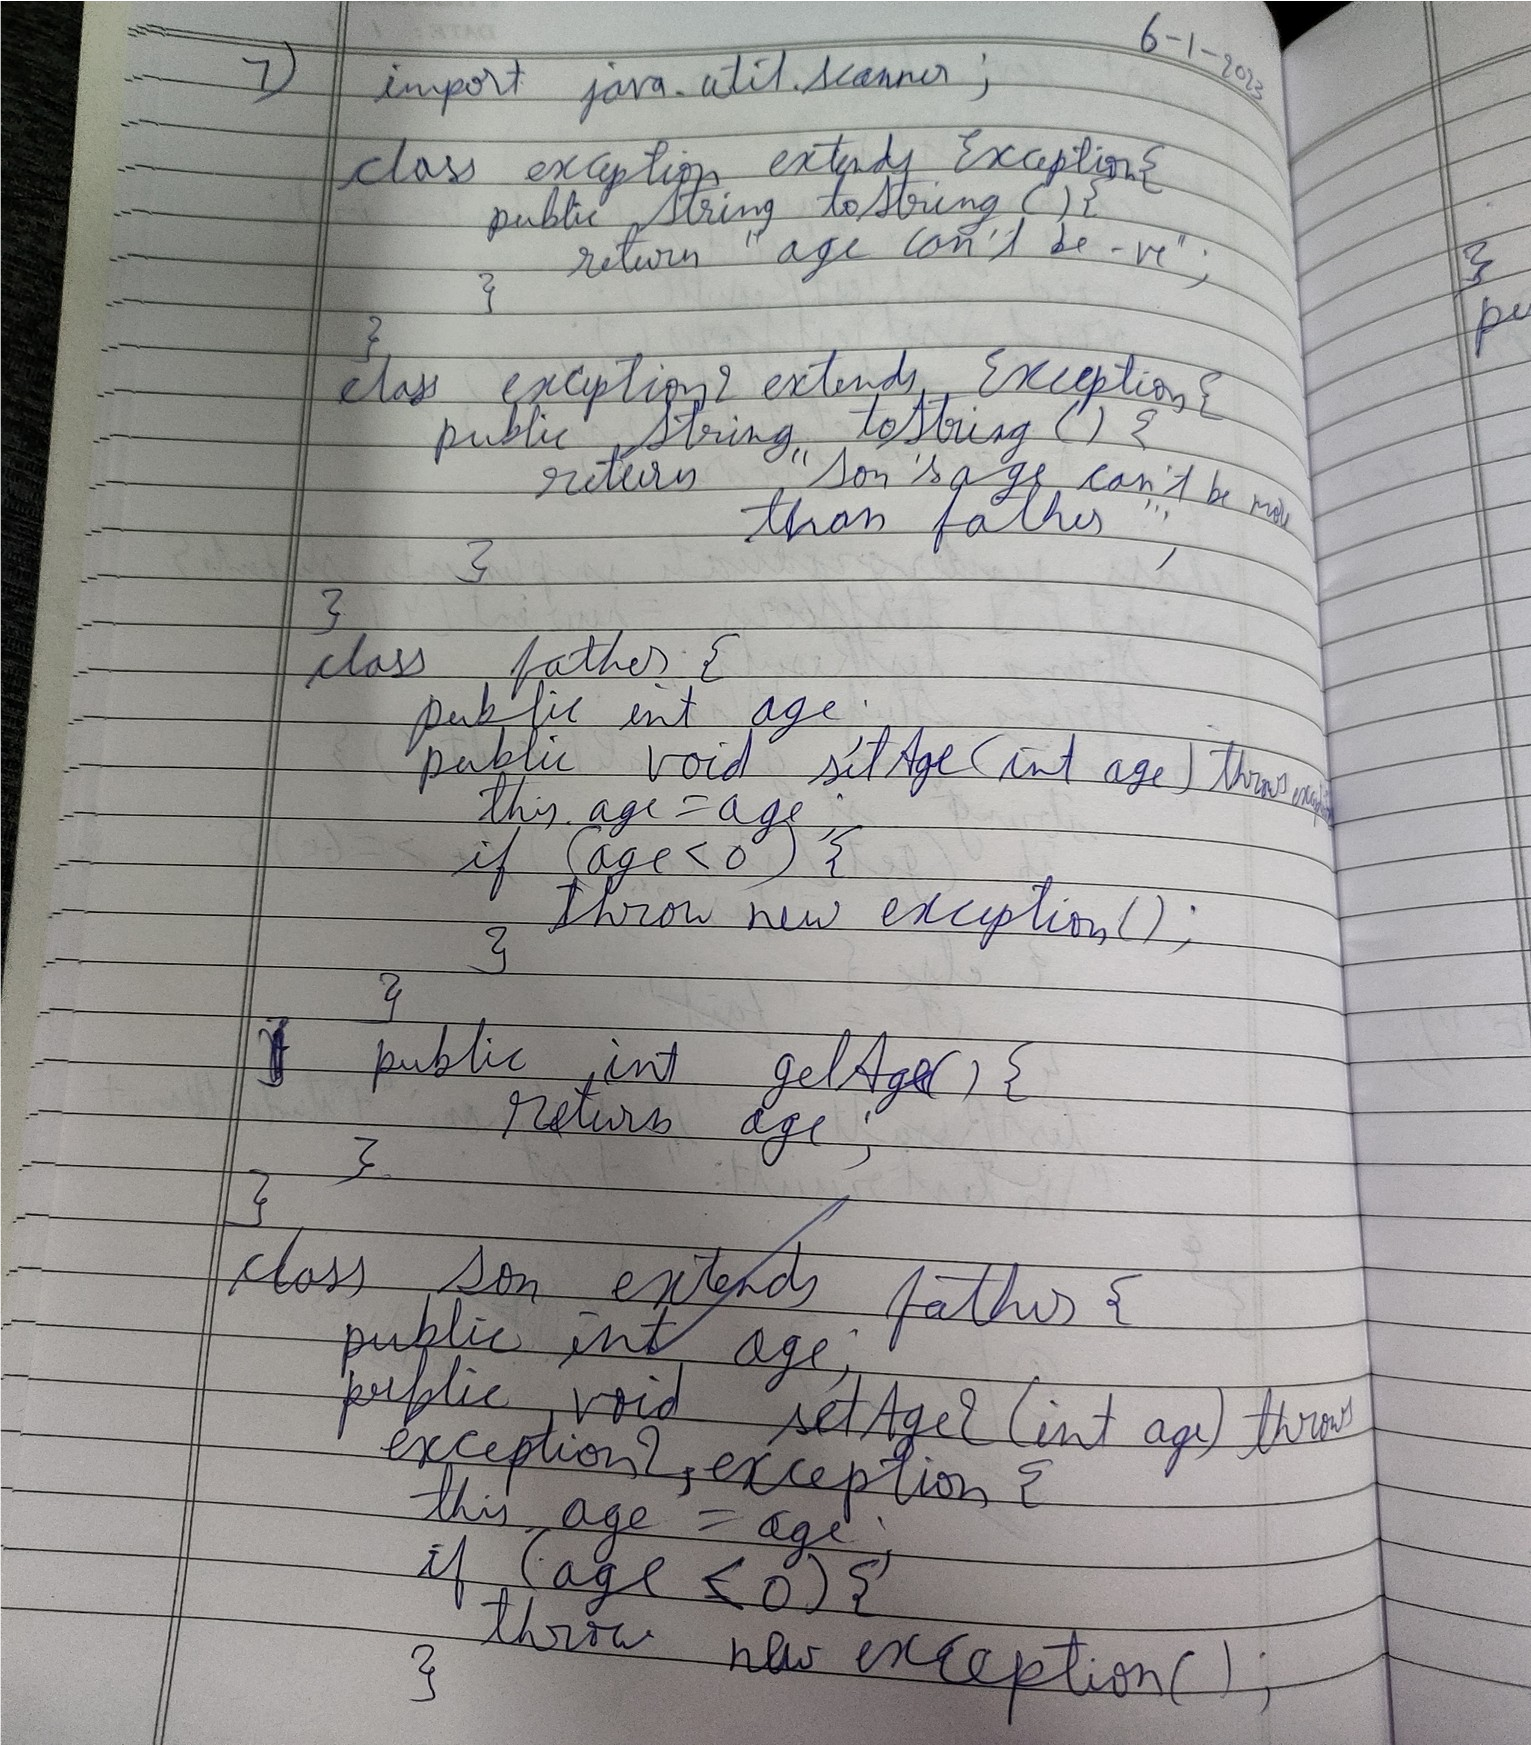 6-1-2023
7) import java.util.scanner;
class exception extends Exception{
public String toString(){
return "age can't be -ve";
}
}
class exception2 extends Exception{
public String toString() {
return "Son's age can't be more
than father";
}
}
class father {
public int age;
public void setAge(int age) throws exception
this.age = age;
if (age<0) {
throw new exception();
}
}
public int getAge() {
return age;
}
}
class son extends father {
public int age;
public void setAge2 (int age) throws
exception2, exception {
this.age = age;
if (age ≤ 0) {
throw new exception();
}
}
pu